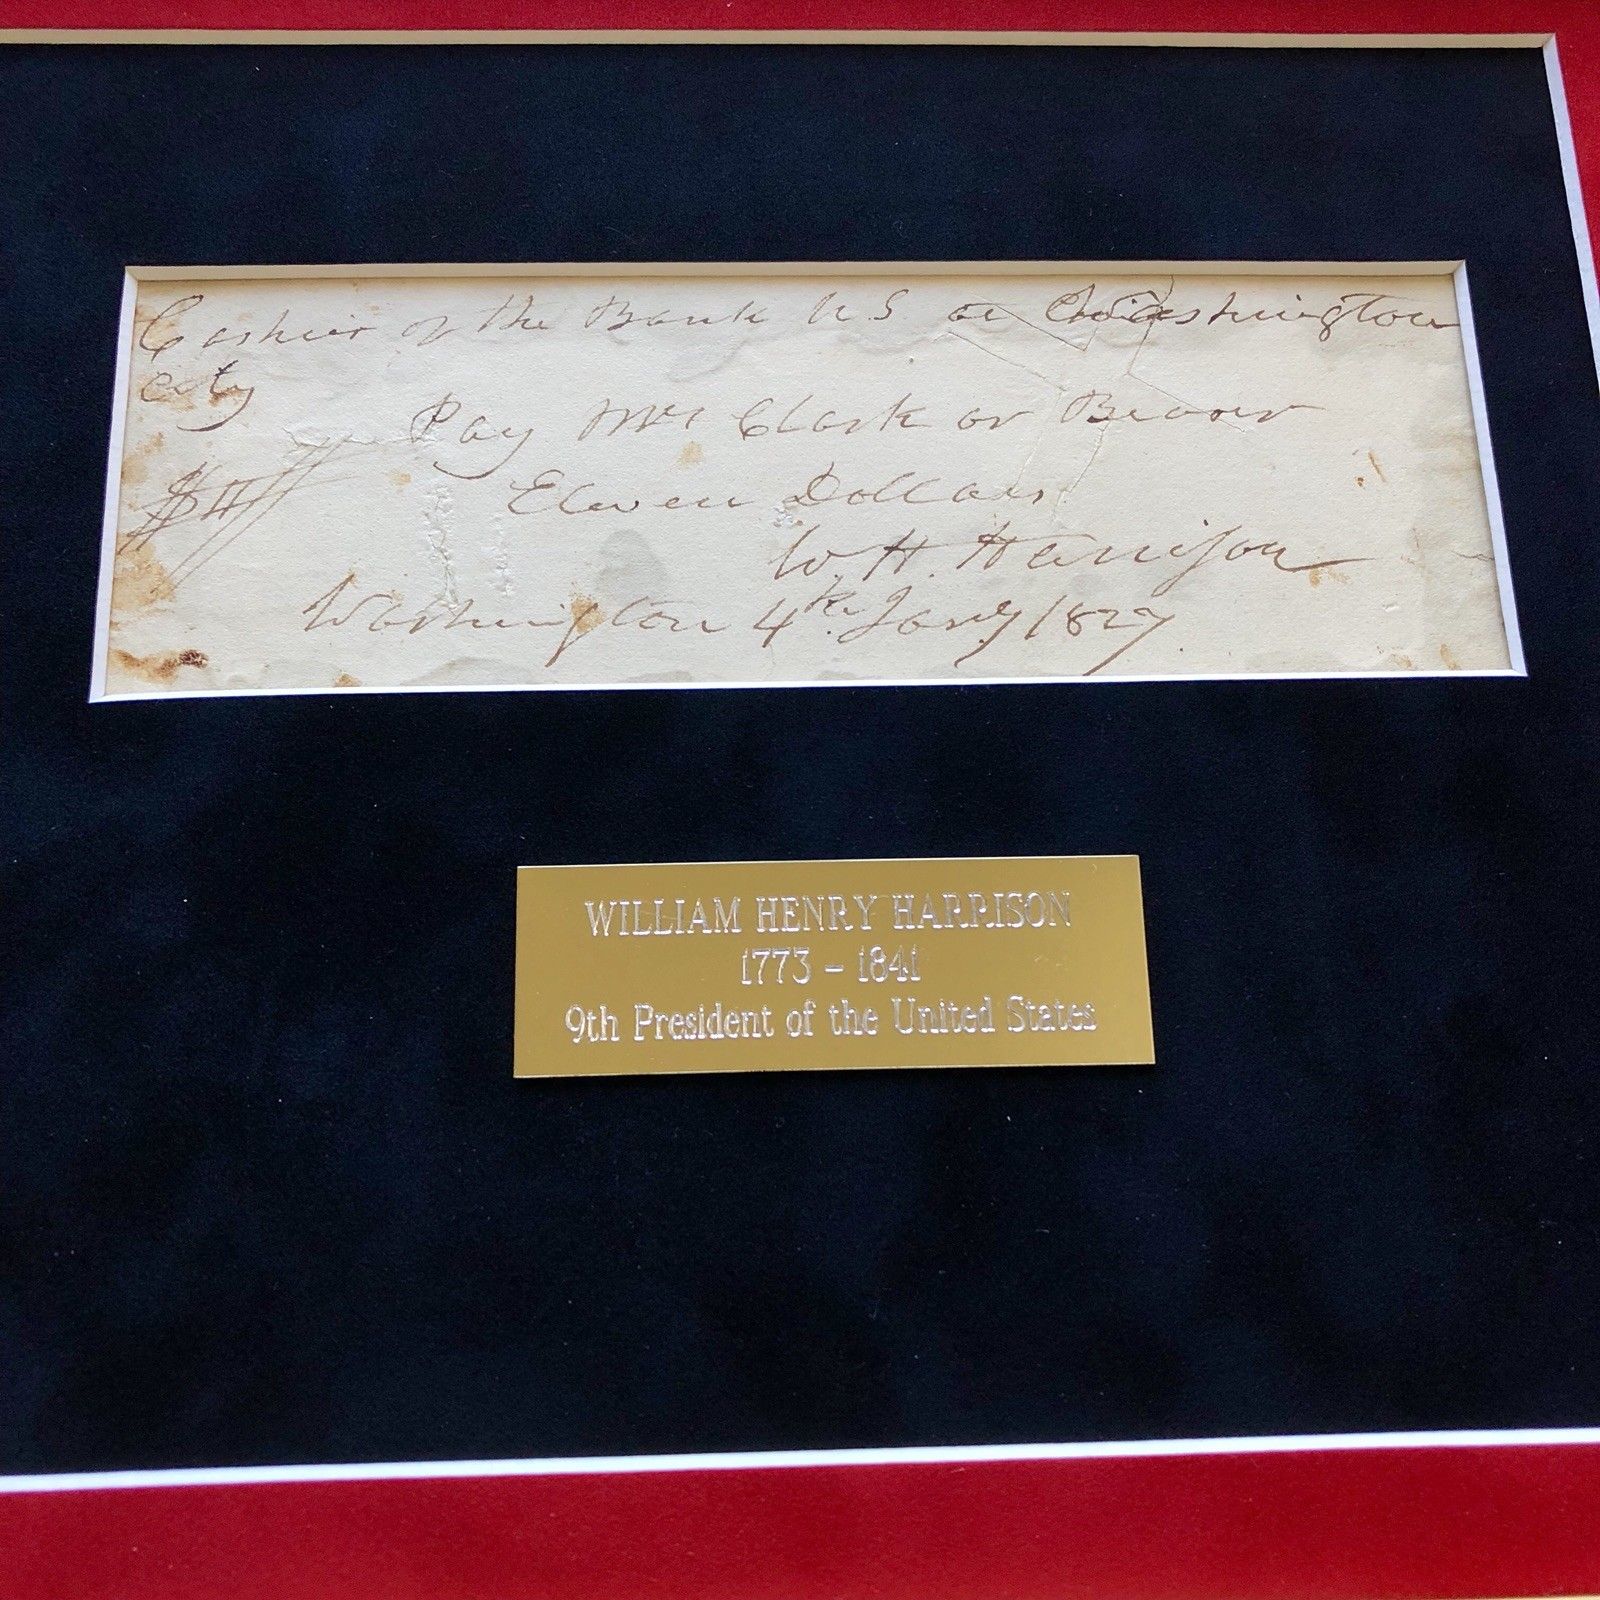 Cashier of the Bank U.S at Washington
City
Pay Mr Clark or Bearer
$11
Eleven Dollars
W. H. Harrison
Washington 4th. Jany 1827
WILLIAM HENRY HARRISON
1773 - 1841
9th President of the United States